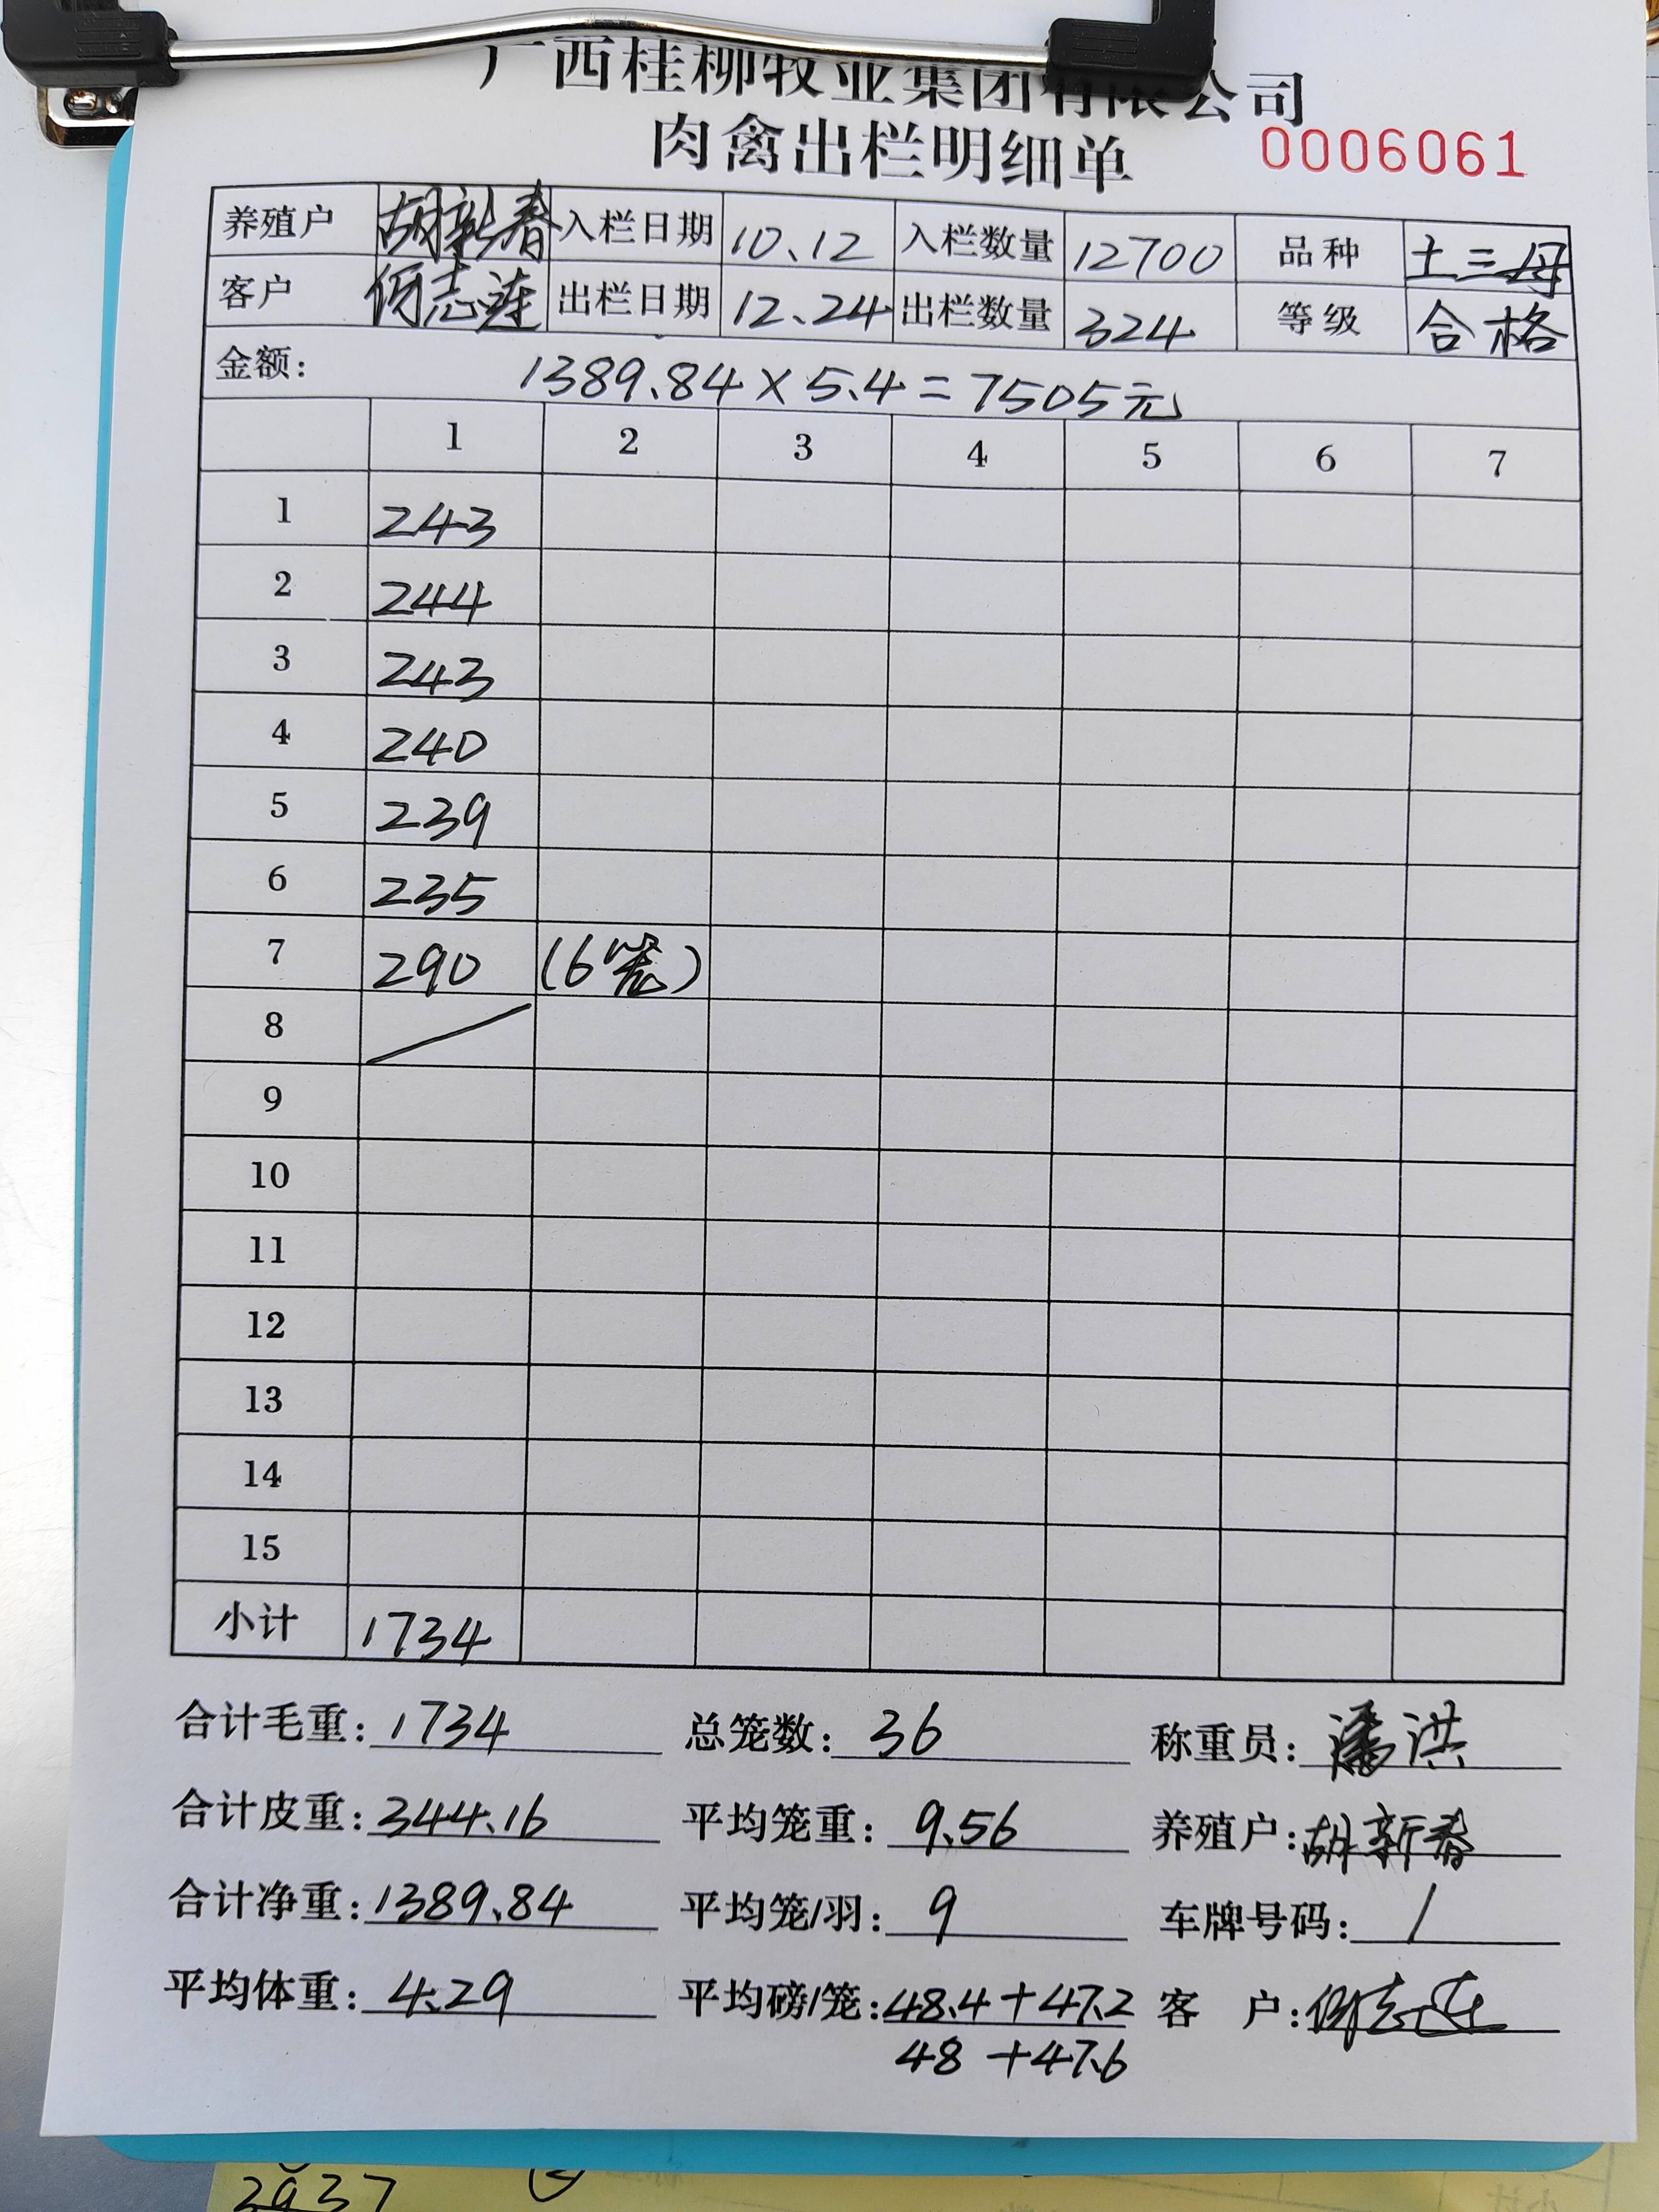 广西桂柳牧业集团有限公司
肉禽出栏明细单 0006061
养殖户 胡新春 入栏日期 10.12 入栏数量 12700 品种 土二母
客户 何志莲 出栏日期 12.24 出栏数量 324 等级 合格
金额: 1389.84×5.4=7505元
1 2 3 4 5 6 7
1 243
2 244
3 243
4 240
5 239
6 235
7 290 (6笼)
8
9
10
11
12
13
14
15
小计 1734
合计毛重: 1734 总笼数: 36 称重员: 潘洪
合计皮重: 344.16 平均笼重: 9.56 养殖户: 胡新春
合计净重: 1389.84 平均笼/羽: 9 车牌号码: /
平均体重: 4.29 平均磅/笼: 48.4+47.2 客 户: 何志莲
48+47.6
2937